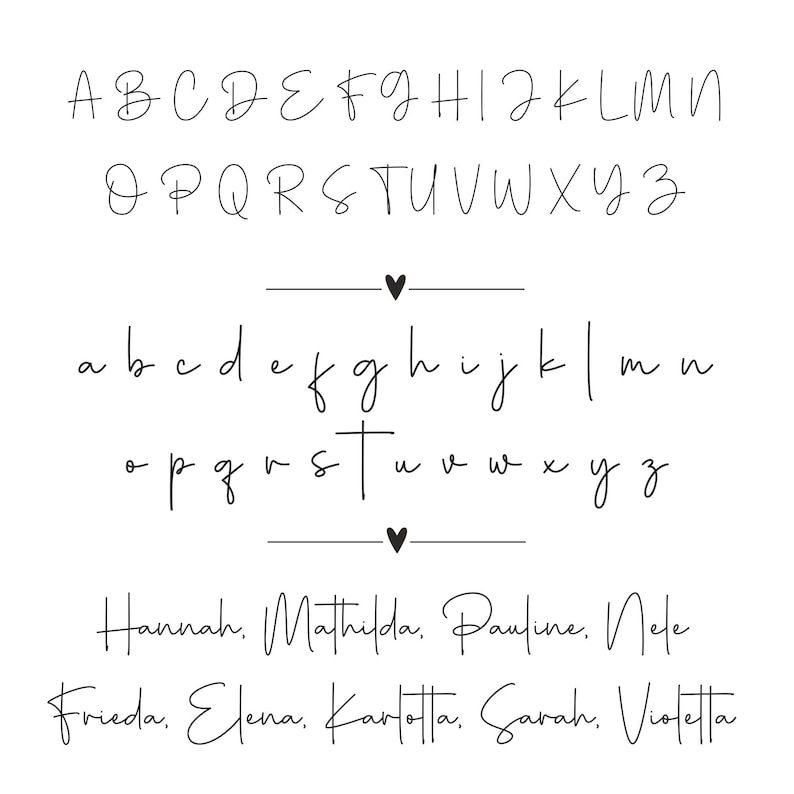 A B C D E F G H I J K L M N
O P Q R S T U V W X Y Z
a b c d e f g h i j k l m n
o p q r s t u v w x y z
Hannah, Mathilda, Pauline, Nele
Frieda, Elena, Karlotta, Sarah, Violetta